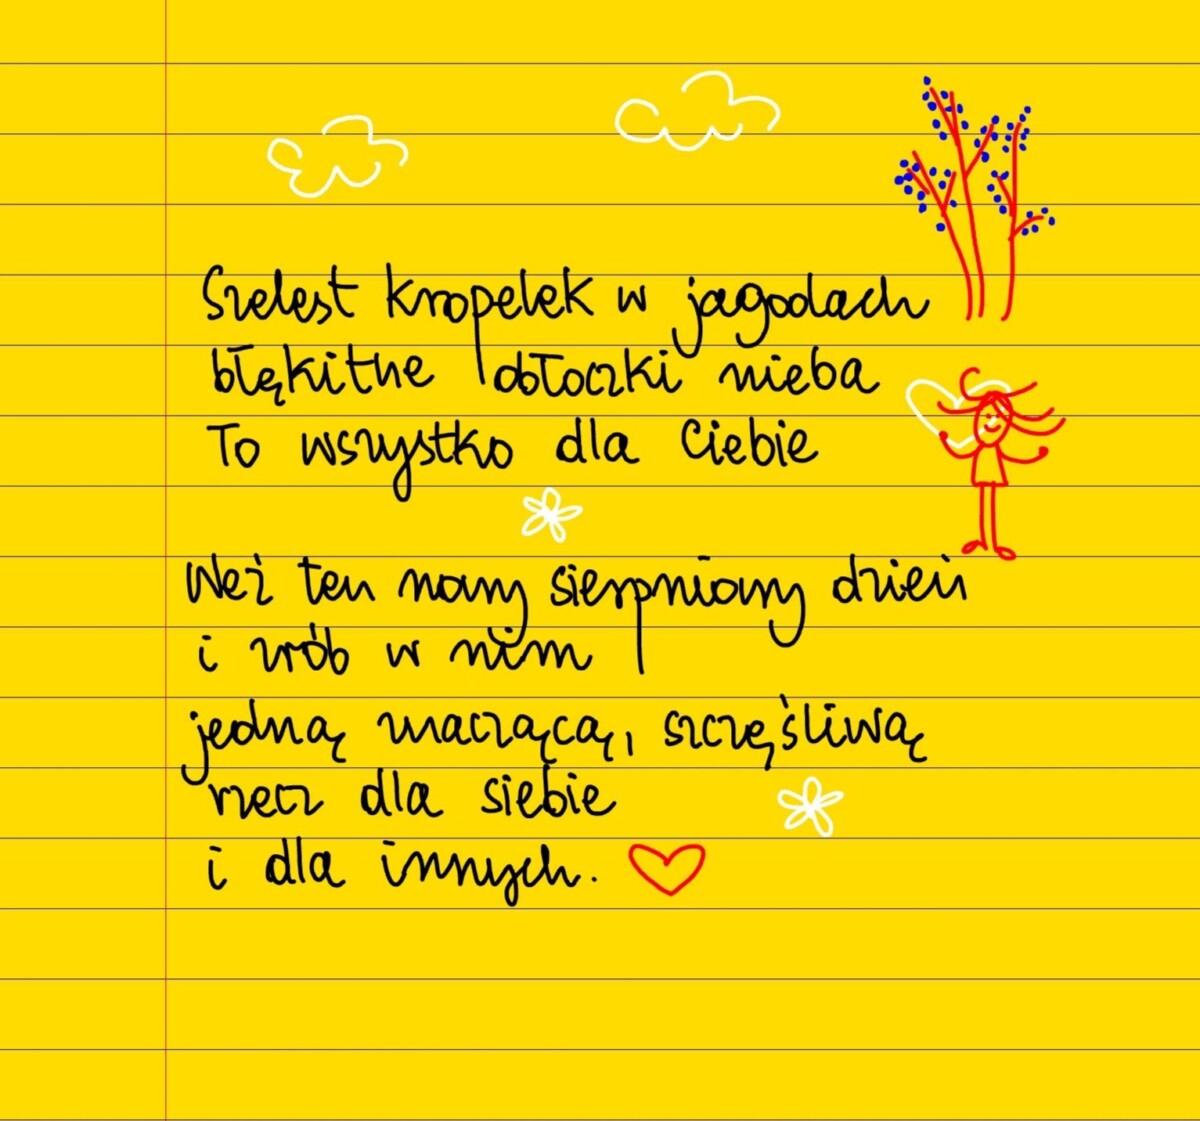 Szelest kropelek w jagodach
błękitne obłoczki nieba
To wszystko dla Ciebie
Weź ten nowy sierpniowy dzień
i zrób w nim
jedną znaczącą, szczęśliwą
rzecz dla siebie
i dla innych.